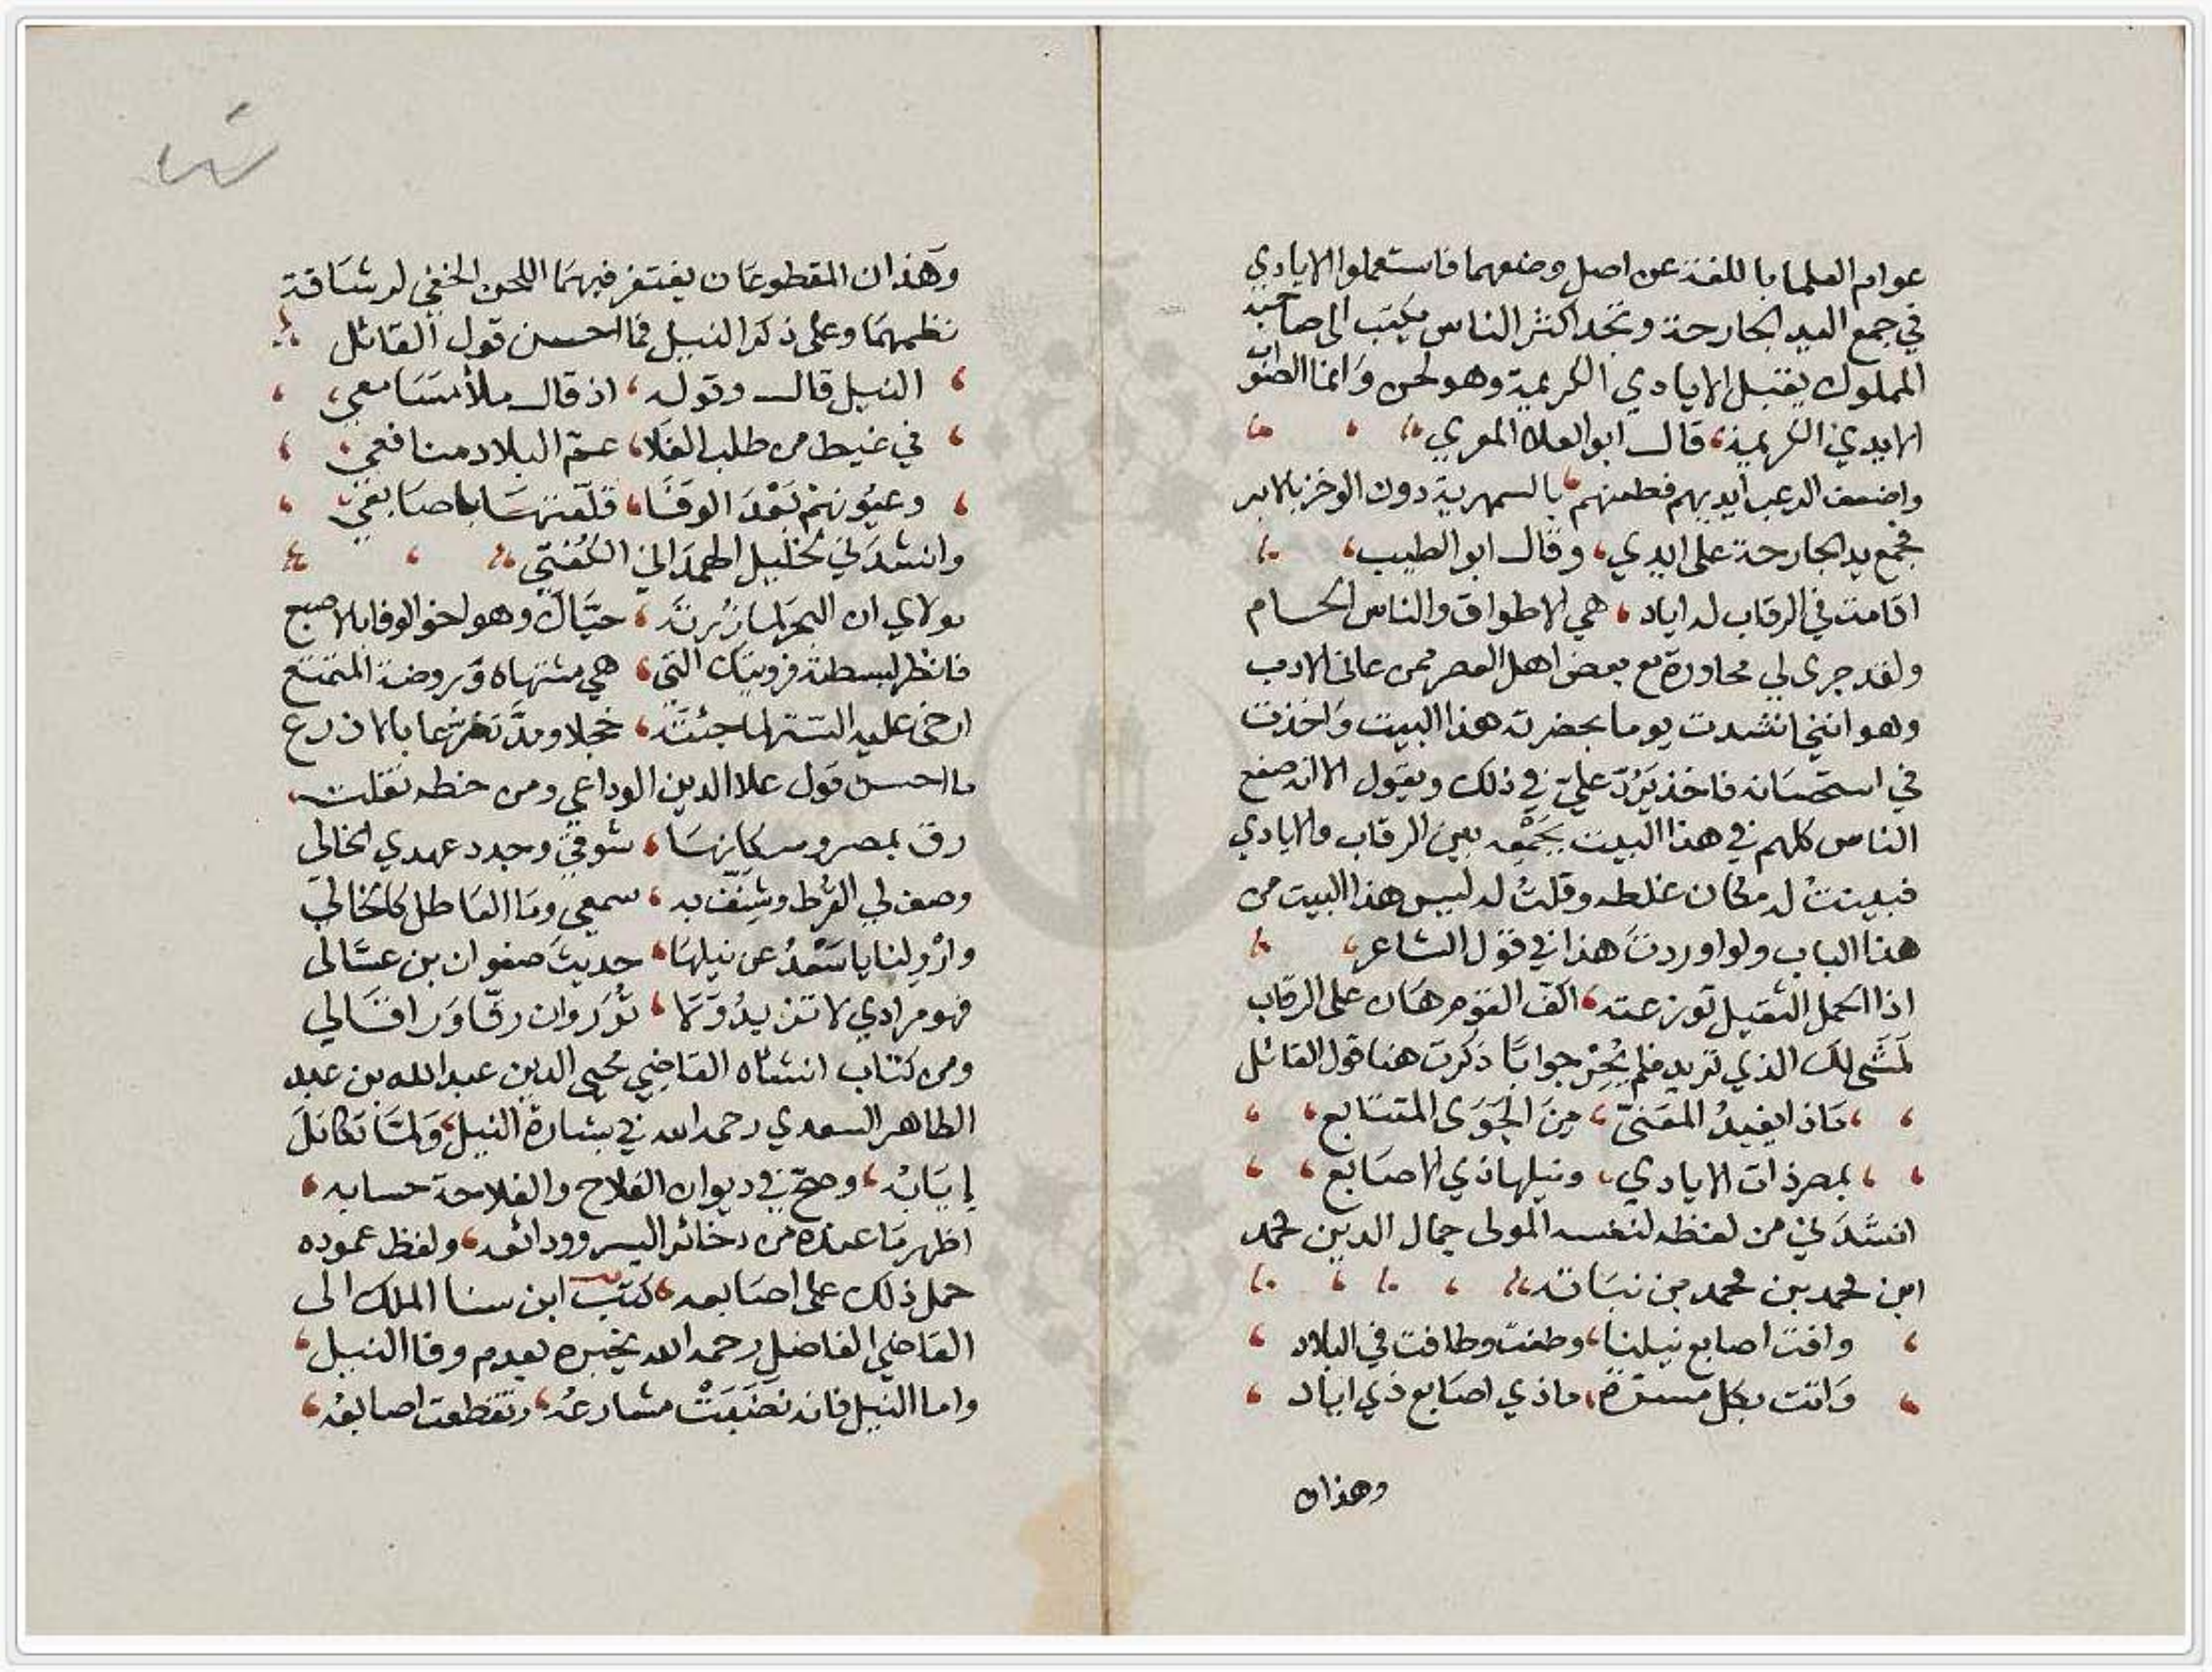 عوام العلما باللغة عن اصل وضعهما فاستعملوا الايادي
في جمع اليد الجارحة وتجد اكثر الناس يكتب الى صاحبه
المملوك يقبل الايادي الكريمة وهو لحن وانما الصواب
الايدي الكريمة، قال ابو العلاء المعري،
واضعف الرعب ايديهم فطعنهم، بالسمهرية دون الوخز بالابر
فجمع يد الجارحة على ايدي، وقال ابو الطيب،
اقامت في الرقاب له اياد، هي الاطواق والناس الحمام
ولقد جرى لي محاورة مع بعض اهل العصر ممن عانى الادب
وهو انني انشدت يوما بحضرته هذا البيت واخذت
في استحسانه فاخذ يَرُدّ عليّ في ذلك ويقول الا انه صفع
الناس كلهم في هذا البيت بجَمْعِه بين الرقاب والايادي
فبينتُ له مكان غلطه وقلتُ له ليس هذا البيت من
هذا الباب ولو اوردتَ هذا في قول الشاعر،
اذا الحمل الثقيل توزعته، اكف القوم هان على الرقاب
لمَشَى لك الذي تريد فلم يُحِرْ جوابًا ذكرت هنا قول القائل
، ماذا يفيدُ المعَنىّ، مِنَ الجَوَى المتتابع،
، بمصر ذات الايادي، ونيلها ذي الاصابع،
انشدَني من لفظه لنفسه المولى جمال الدين محمد
ابن محمد بن محمد بن نباتة،
، وافت اصابع نيلنا، وطغت وطافت في البلاد،
، وَاتت بكل مسرة، ماذي اصابع ذي اياد،
وهذان
وهذان المقطوعان يغتفر فيهما اللحن الخفي لرشاقة
نظمهما وعلى ذكر النيل فما احسن قول القائل
، النيل قال وقوله، اذ قال ملأ مسامعي،
، في غيط من طلب الغلا، عمّ البلاد منافعي،
، وعيونهم بَعْدَ الوفَا، قلّعتها باصابعي،
وانشدَني لخليل الهمداني الكُفتي
مولاي ان البحر لما زُرته، حيّاك وهو اخو الوفا بالاصبع
فانظر لبسطته فرويتك التي، هي مشتهاه وروضة المتمتع
ارخى عليه الستر لما جئته، خجلا ومدَّ تضرعا بالاذرع
ما احسن قول علا الدين الوداعي ومن خطه نقلت،
رق بمصر وسكانها، شوقي وجدد عهدي الخالي
وصف لي القُرط وشَنّف به، سمعي وما العاطل كالحالي
وارْوِ لنا يا سَعْدُ عن نيلها، حديثَ صفوان بن عسّالي
فهو مرادي لا تزيدُ ولا، ثورَ وان رقّا ورَاقَا لي
ومن كتاب انشأه القاضي محيي الدين عبد الله بن عبد
الظاهر السعدي رحمه الله في بشارة النيل، وَلمّا تكامَل
إيابُهُ، وصحّ في ديوان الفلاح والفلاحة حسابه،
اظهر ما عنده من دخائر اليسر وودائعه، ولفظ عموده
حمل ذلك على اصابعه، كتب ابن سنا الملك الى
القاضي الفاضل رحمه الله يخبره بعدم وفا النيل،
واما النيل فانه نَضَبَتْ مشارعُه، وتقطعت اصابعُه،